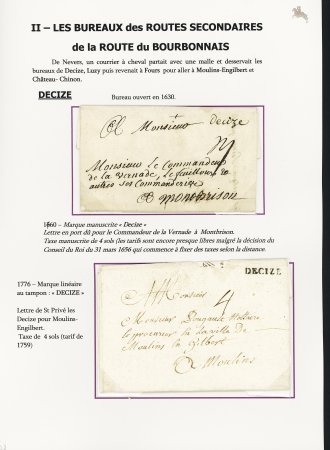 II – LES BUREAUX des ROUTES SECONDAIRES
de la ROUTE du BOURBONNAIS
De Nevers, un courrier à cheval partait avec une malle et desservait les
bureaux de Decize, Luzy puis revenait à Fours pour aller à Moulins-Engilbert et
Château- Chinon.
DECIZE
Bureau ouvert en 1630.
A Monsieur decize
Monsieur Le Commandeur
de la vernade,
autres ses commanderies
A Montbrison
1660 – Marque manuscrite « Decize »
Lettre en port dû pour le Commandeur de la Vernade à Montbrison.
Taxe manuscrite de 4 sols (les tarifs sont encore presque libres malgré la décision du
Conseil du Roi du 31 mars 1656 qui commence à fixer des taxes selon la distance
1776 – Marque linéaire
au tampon : « DECIZE »
Lettre de St Privé les
Decize pour Moulins-
Engilbert.
Taxe de 4 sols (tarif de
1759)
DECIZE
A Monsieur 4
Monsieur
le procureur de la ville de
Moulins en Gilbert
A Moulins